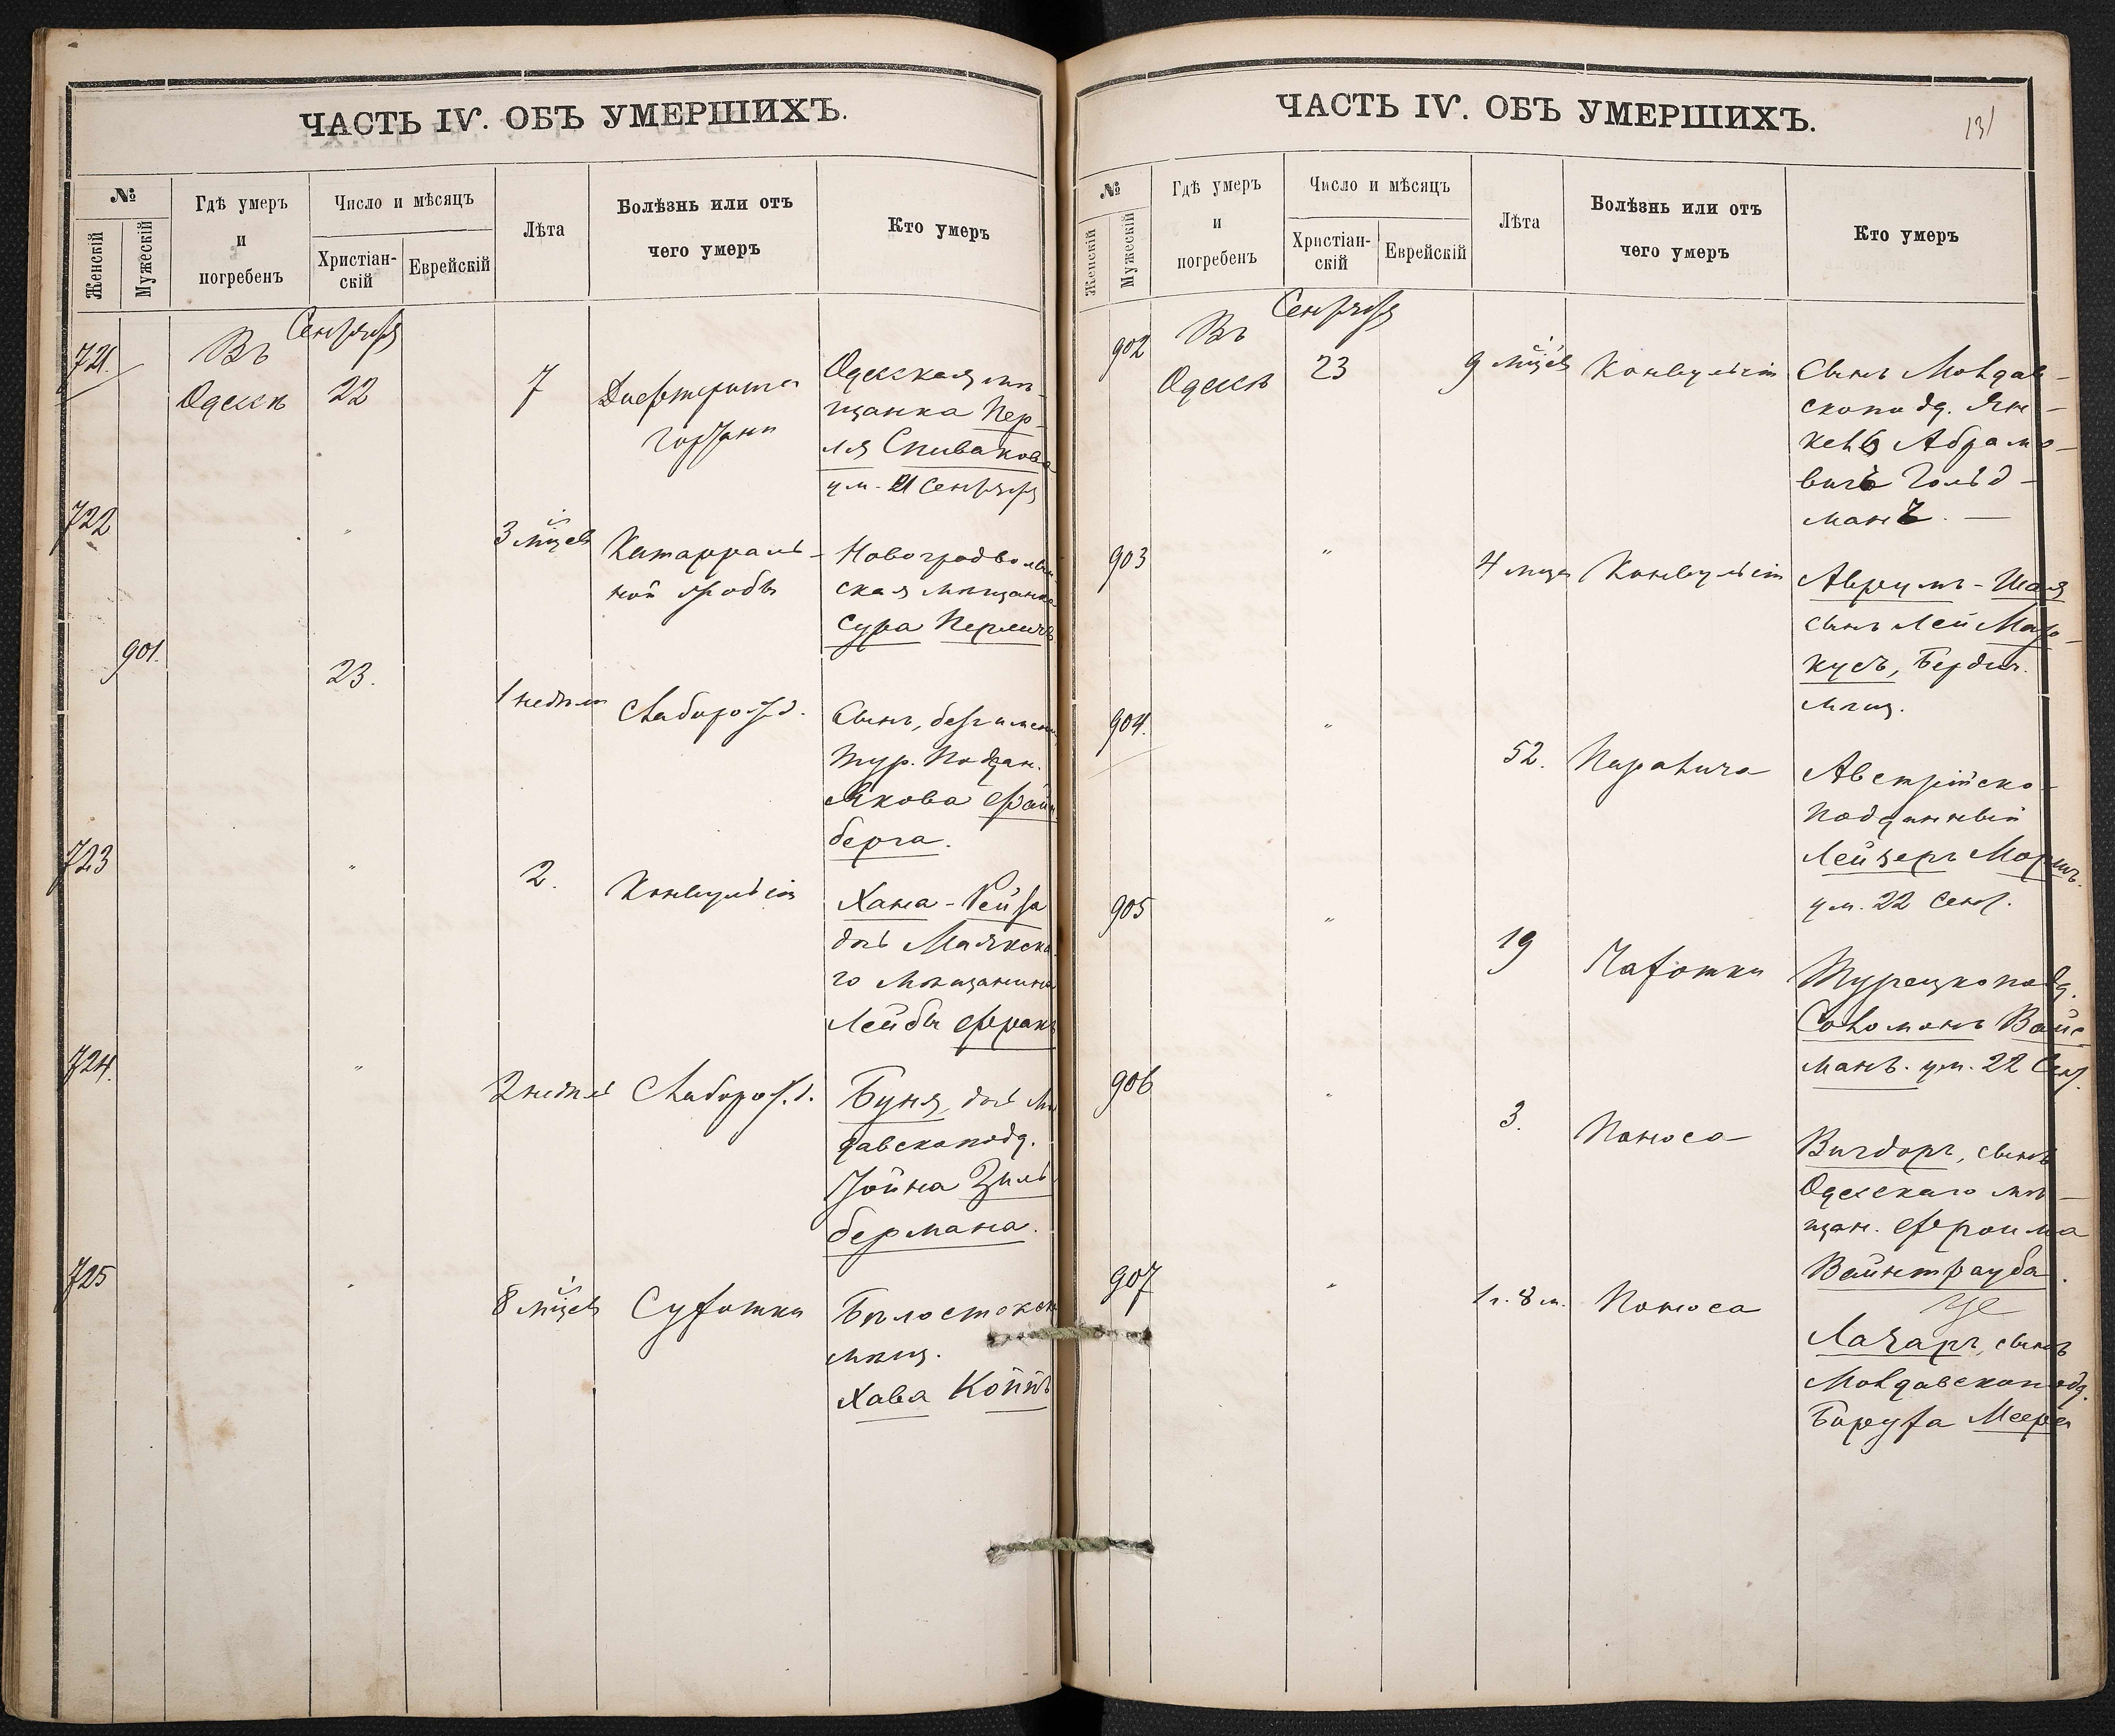 ЧАСТЬ IV. ОБЪ УМЕРШИХЪ.
№
Женскій
Мужескій
Гдѣ умеръ
и
погребенъ
Число и мѣсяцъ
Христіан-
скій
Еврейскій
Лѣта
Болѣзнь или отъ
чего умеръ
Кто умеръ
721.
Въ
Одессѣ
Сентября
22
7
Дифтерита
гортани
Одесская мѣ-
щанка Пер-
ля Спивакова
ум. 21 Сентября
722
"
3 мцев
Катарраль-
ной
Новоградволын
ская мѣщанка
Сура
901.
23.
1 недѣли
Слаборожд.
Сынъ, безъ имени,
Тур. Поддан.
Якова Файн
берга.
723
"
2.
Конвульсіи
Хана-Рейза
дочь Маякска
го Мѣщанина
Лейбы Френк
724.
"
2 недѣль
Слаборожд.
Буня, дочь Мол
давскоподд.
Іойна Зиль
бермана.
725
"
8 мцев
Сухотки
Бѣлостокск
мѣщ.
Хава
ЧАСТЬ IV. ОБЪ УМЕРШИХЪ.
131
№
Женскій
Мужескій
Гдѣ умеръ
и
погребенъ
Число и мѣсяцъ
Христіан-
скій
Еврейскій
Лѣта
Болѣзнь или отъ
чего умеръ
Кто умеръ
902
Въ
Одессѣ
Сентября
23
9 мцев
Конвульсіи
Сынъ Молдав-
скоподд. Ян-
кель Абрамо-
вичъ Гольд-
манъ. —
903
"
4 мцев
Конвульсіи
Аврумъ-Шая
сынъ Лей Мар-
кусъ, Бердич.
мѣщ.
904.
"
52.
Паралича
Австрійско-
подданный
Лейзеръ
ум. 22 Сент.
905
"
19
Чахотки
Турецкоподд.
Соломонъ Вайс
манъ. ум. 22 Сент.
906
"
3.
Поноса
Вигдоръ, сынъ
Одесскаго мѣ-
щан. Фроима
Вайнтрауба.
907
"
1 г. 8 м.
Поноса
Лазаръ, сынъ
Молдавскоподд.
Баруха Меера